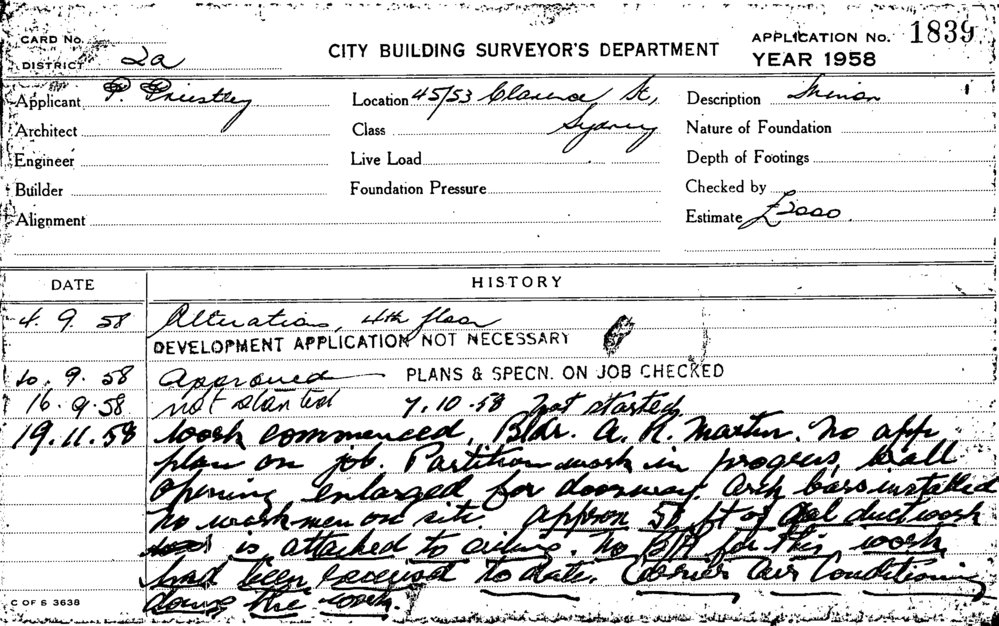 CARD No.
DISTRICT 2a
CITY BUILDING SURVEYOR'S DEPARTMENT
APPLICATION No. 1839
YEAR 1958
Applicant P. Priestley
Location 45/53 Clarence St,
Sydney
Description Minor
Architect
Class
Nature of Foundation
Engineer
Live Load
Depth of Footings
Builder
Foundation Pressure
Checked by
Alignment
Estimate £2000
DATE HISTORY
4. 9. 58 Alterations, 4th floor
DEVELOPMENT APPLICATION NOT NECESSARY
10. 9. 58 Approved PLANS & SPECN. ON JOB CHECKED
16. 9. 58 not started 7.10.58 Not started
19.11.58 Work commenced, Bldr. A. R. Martin. No app
plan on job. Partition work in progress, wall
opening enlarged for doorway. Arch bars installed
no workmen on site. Approx 50 ft of Gal duct work
is attached to ceiling. No BA for this work
had been received to date. Carrier Air Conditioning
doing the work.
C OF S 3638